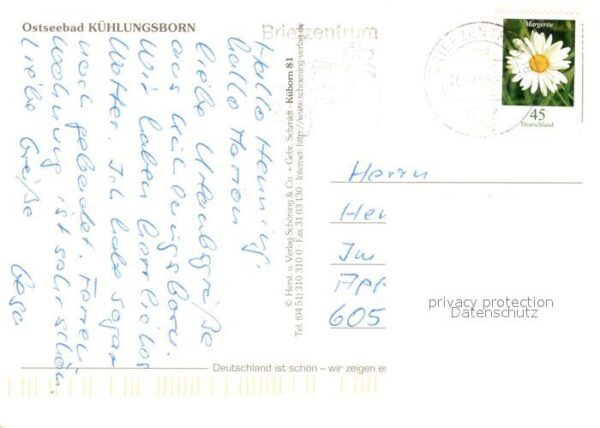 Ostseebad KÜHLUNGSBORN
Briefzentrum
Margerite
45
Deutschland
Hallo Henning,
hallo Marion
liebe Urlaubsgrüße
aus Kühlungsborn.
Wir haben herrliches
Wetter. Ich habe sogar
noch gebadet. Ferien
wohnung ist sehr schön.
Liebe Grüße
© Herst. u. Verlag Schöning & Co. + Gebr. Schmidt · Küborn 81
Tel. (04 51) 310 310 0 · Fax 31 03 130 · Internet: http://www.schoening-verlag.de
Herrn
Hen
Im
App
605
privacy protection
Datenschutz
Deutschland ist schön – wir zeigen es